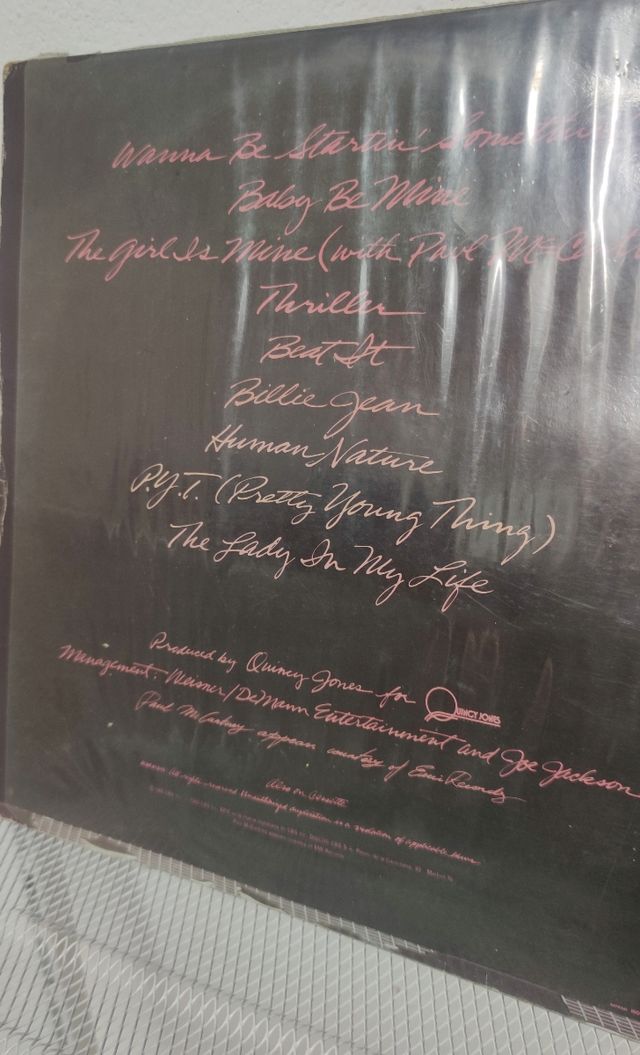 Wanna Be Startin' Somethin
Baby Be Mine
The Girl Is Mine (with Paul McCa
Thriller
Beat It
Billie Jean
Human Nature
P.Y.T. (Pretty Young Thing)
The Lady In My Life
Produced by Quincy Jones for QUINCY JONES
Management: Weisner/DeMann Entertainment and Joe Jackson
Paul McCartney appears courtesy of Emi Records
Also on Cassette
All rights reserved Unauthorized duplication is a violation of applicable laws